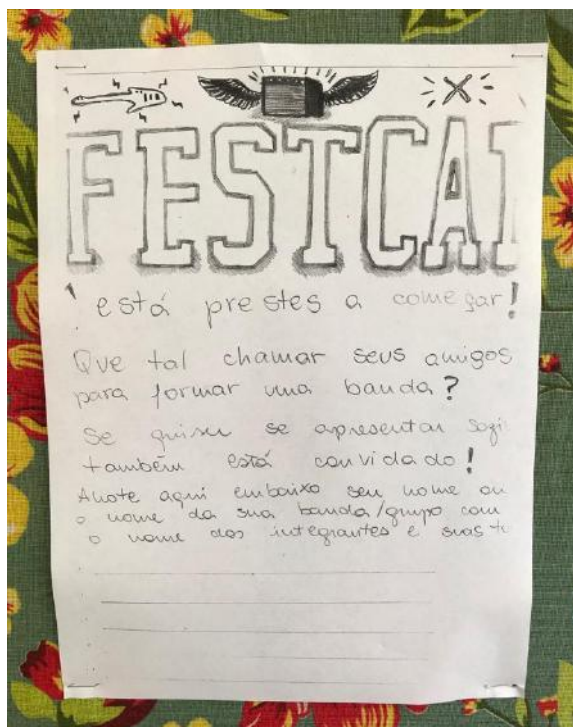 FESTCAI
está prestes a começar!
Que tal chamar seus amigos
para formar uma banda?
Se quiser se apresentar sozi
também está convidado!
Anote aqui embaixo seu nome ou
o nome da sua banda/grupo com
o nome dos integrantes e suas t